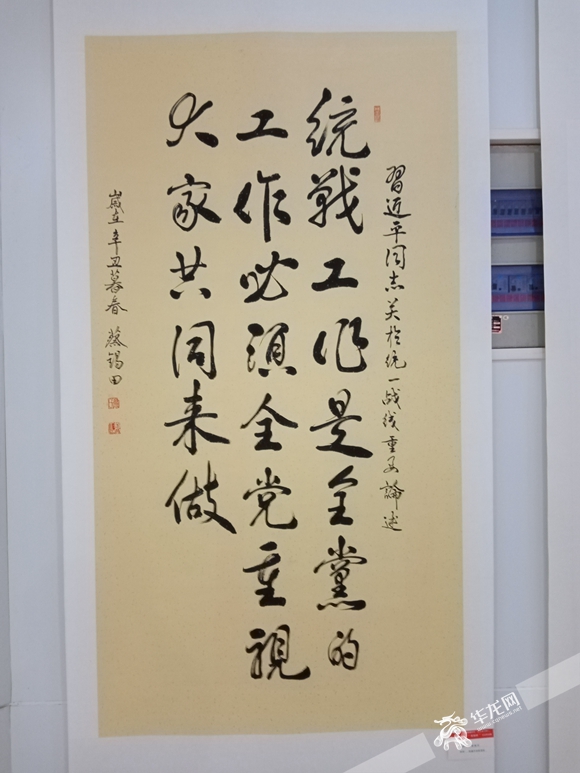 習近平同志关於统一战线重要論述
统戰工作是全黨的
工作必須全党重視
大家共同来做
歲在辛丑暮春 蔡锡田
华龙网
www.cqnews.net